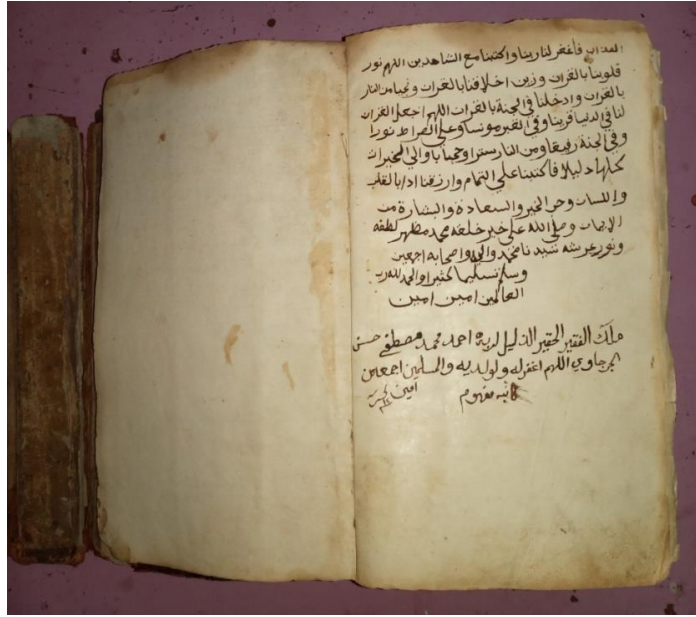 العذاب فاغفر لنا ربنا واكتبنا مع الشاهدين اللهم نور
قلوبنا بالقران وزين اخلاقنا بالقران ونجنا من النار
بالقران وادخلنا في الجنة بالقران اللهم اجعل القران
لنا في الدنيا قرينا وفي القبر مونسا وعلي الصراط نورا
وفي الجنة رفيقا ومن النار سترا وحجابا والي الخيرات
كلها دليلا فاكتبنا علي التمام وارزقنا ادا بالقلب
واللسان وحر الخير والسعادة والبشارة من
الايمان وصلي الله علي خير خلقه محمد مظهر لطفه
ونور عرشه سيدنا محمد واله واصحابه اجمعين
وسلم تسليما كثيرا والحمد لله رب
العالمين امين امين
ملك الفقير الحقير الذليل لربه احمد محمد مصطفي حسن
الجرجاوي اللهم اغفر له ولوالديه والمسلمين اجمعين
امين